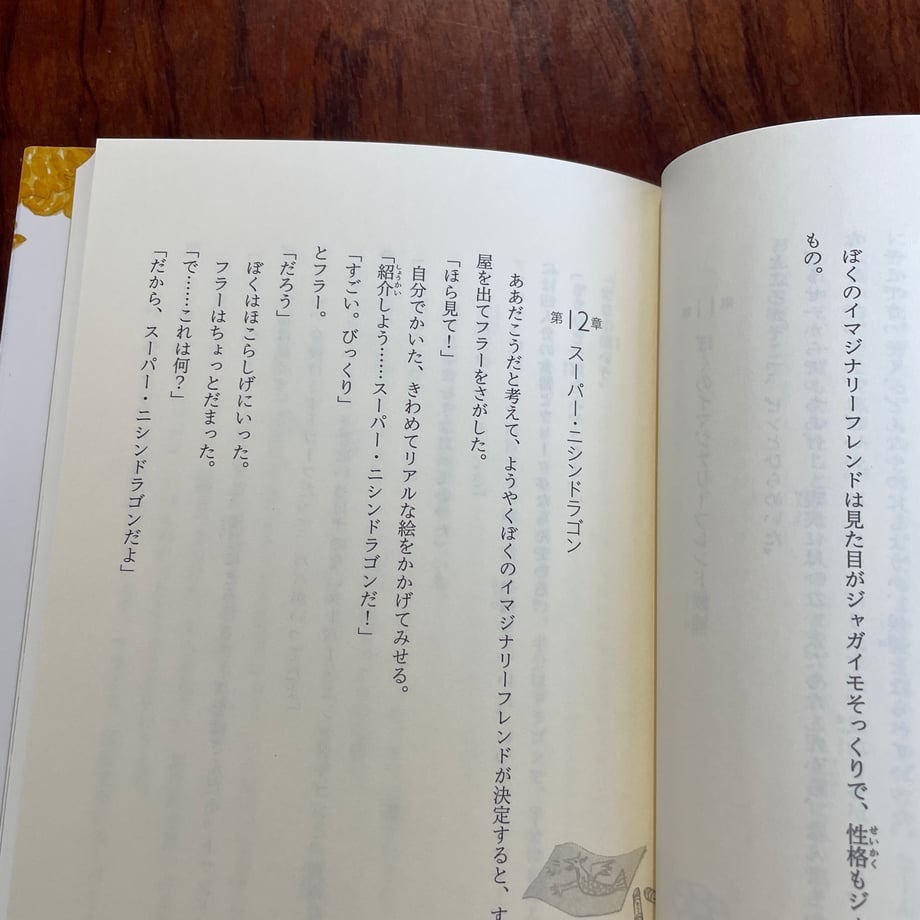 ぼくのイマジナリーフレンドは見た目がジャガイモそっくりで、性格もジ
もの。
第12章 スーパー・ニシンドラゴン
ああだこうだと考えて、ようやくぼくのイマジナリーフレンドが決定すると、す
屋を出てフラーをさがした。
「ほら見て！」
自分でかいた、きわめてリアルな絵をかかげてみせる。
「紹介しよう……スーパー・ニシンドラゴンだ！」
「すごい。びっくり」
とフラー。
「だろう」
ぼくはほこらしげにいった。
フラーはちょっとだまった。
「で……これは何？」
「だから、スーパー・ニシンドラゴンだよ」